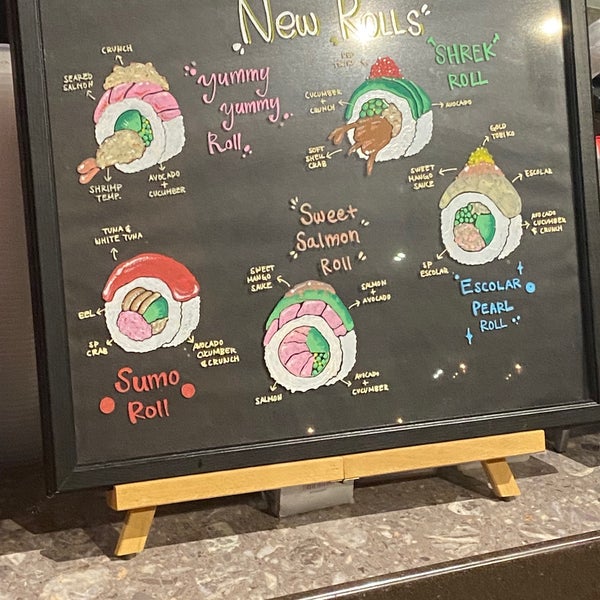 New Rolls
CRUNCH
SEARED
SALMON
SHRIMP
TEMP.
AVOCADO
+
CUCUMBER
Yummy
Yummy
Roll
CUCUMBER
+
CRUNCH
AVOCADO
SOFT
SHELL
CRAB
SHREK
ROLL
GOLD
TOBIKO
SWEET
MANGO
SAUCE
ESCOLAR
AVOCADO
CUCUMBER
& CRUNCH
SP
ESCOLAR
ESCOLAR
PEARL
ROLL
TUNA &
WHITE TUNA
EEL
SP
CRAB
AVOCADO
CUCUMBER
& CRUNCH
Sumo
Roll
Sweet
Salmon
Roll
SWEET
MANGO
SAUCE
SALMON
+
AVOCADO
SALMON
AVOCADO
+
CUCUMBER